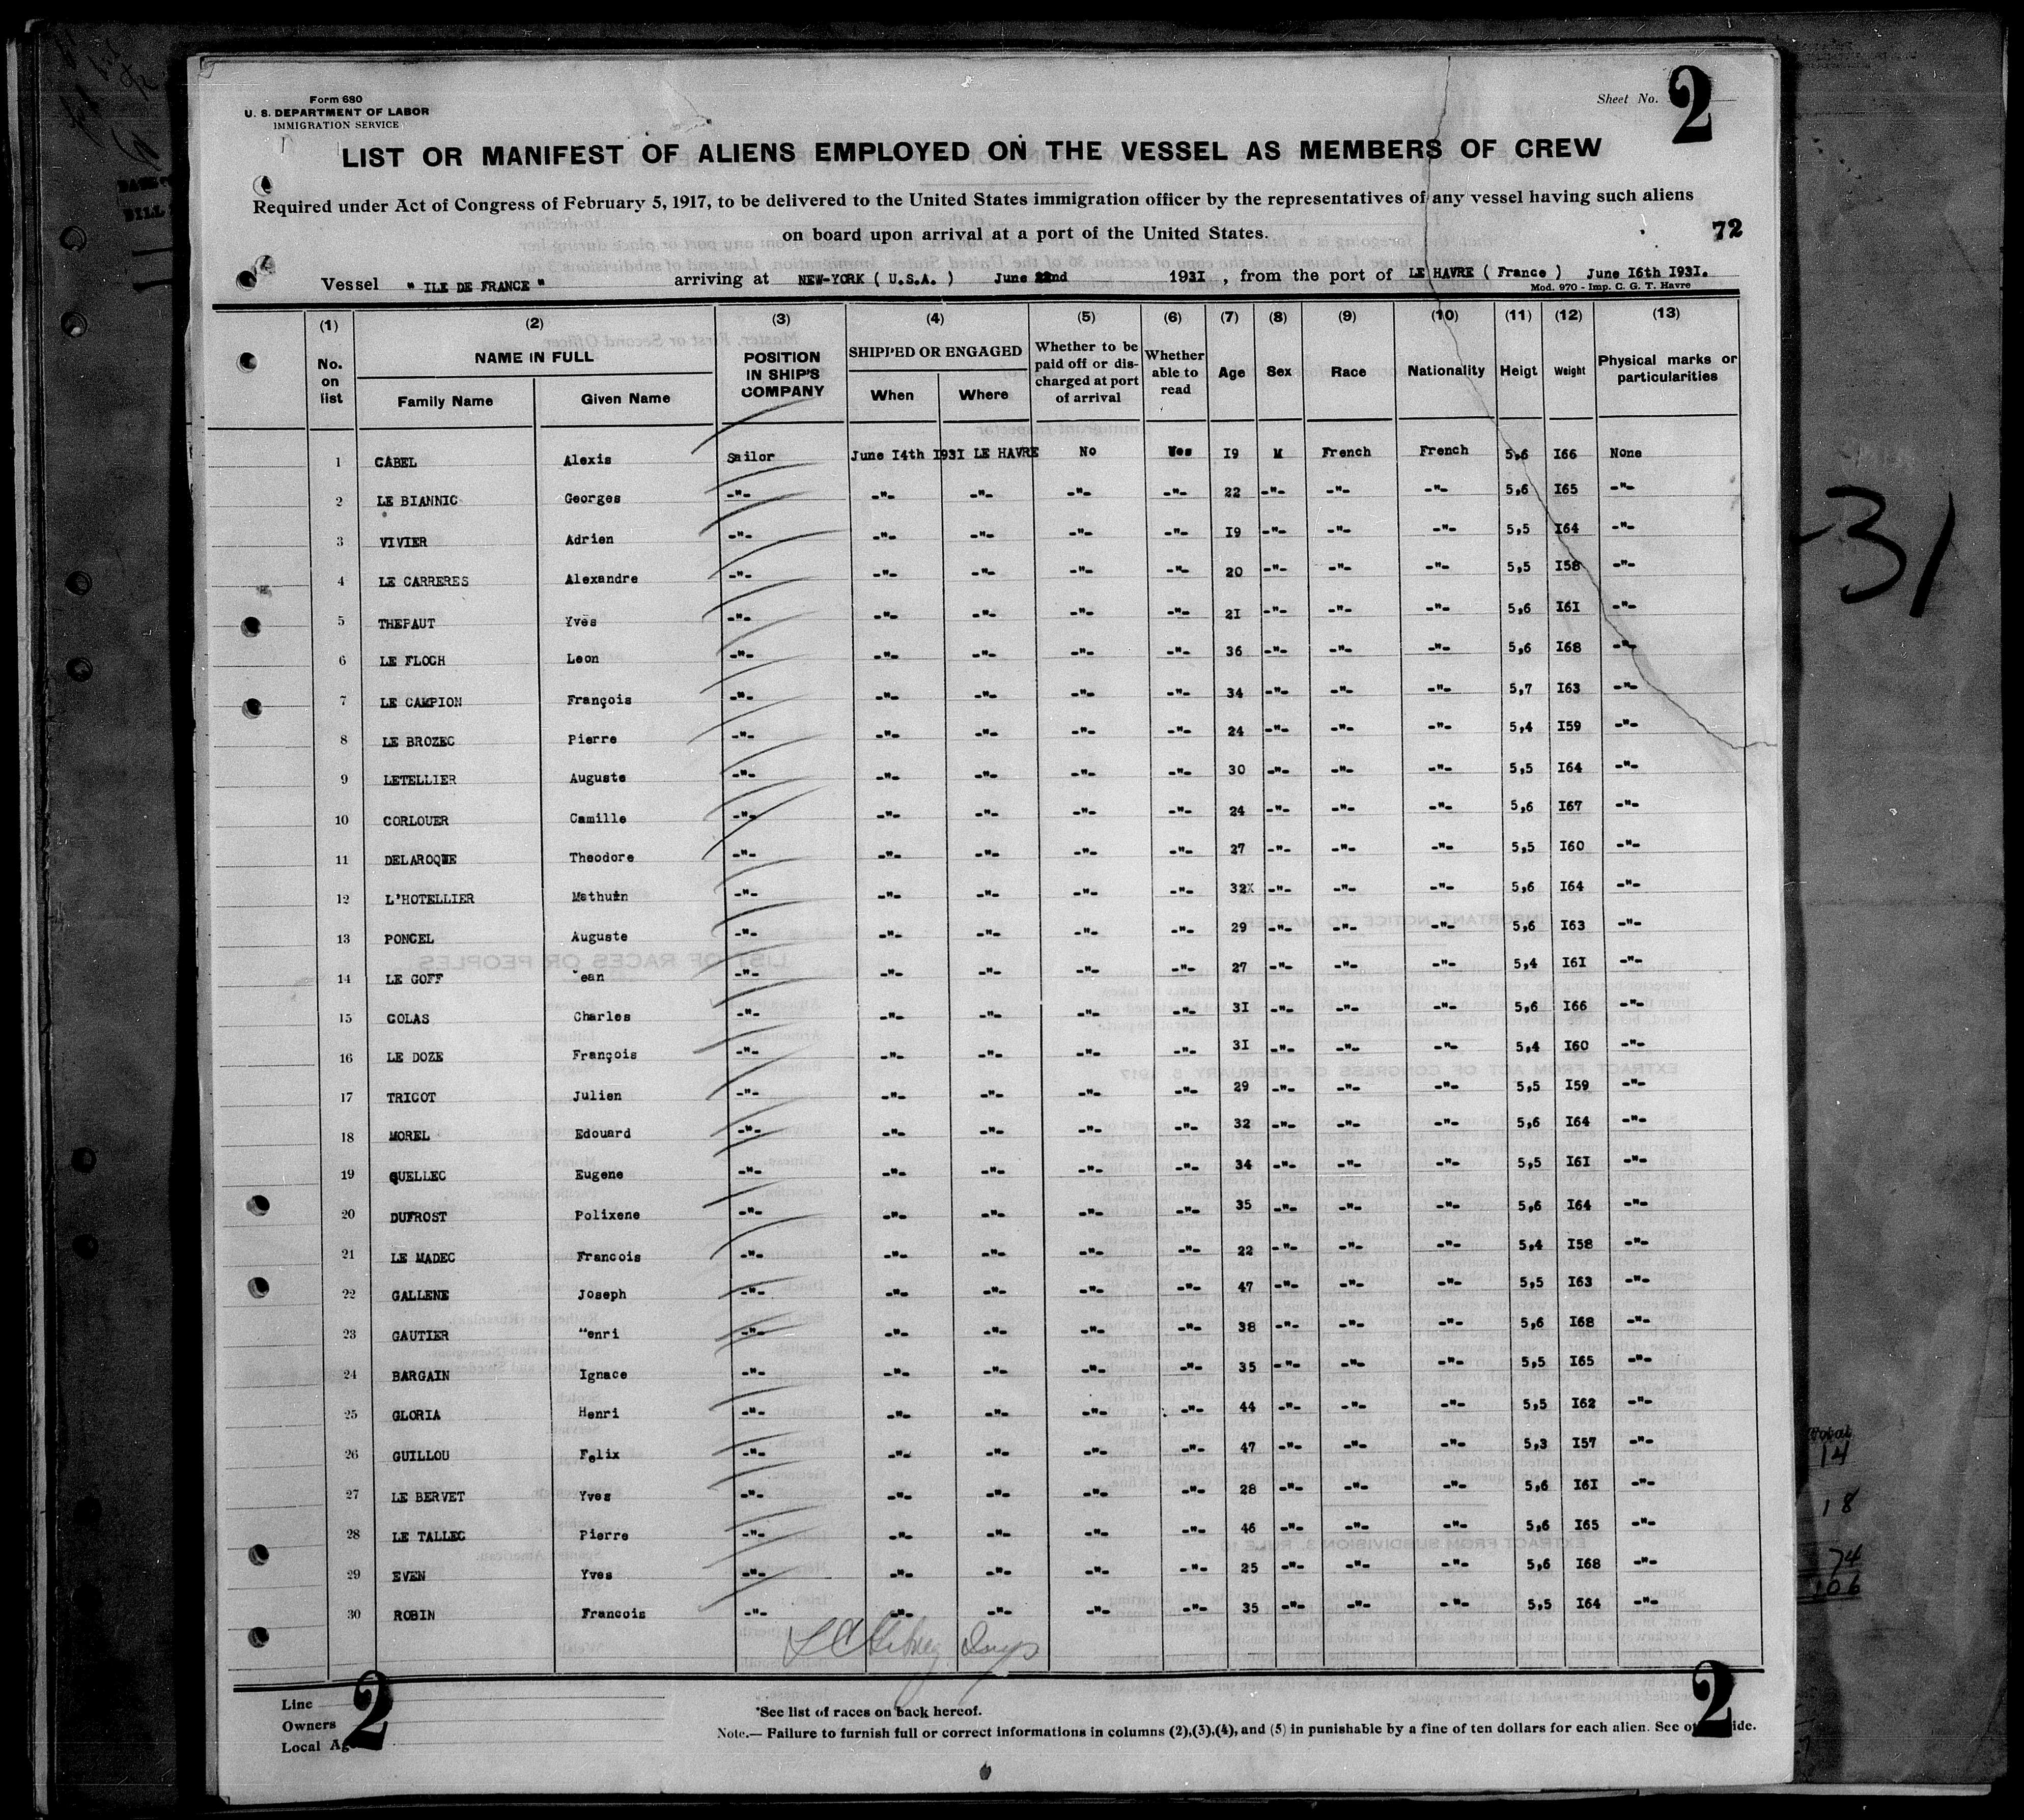 Form 680
U. S. DEPARTMENT OF LABOR
IMMIGRATION SERVICE
Sheet No. 2
LIST OR MANIFEST OF ALIENS EMPLOYED ON THE VESSEL AS MEMBERS OF CREW
Required under Act of Congress of February 5, 1917, to be delivered to the United States immigration officer by the representatives of any vessel having such aliens
on board upon arrival at a port of the United States.
72
Vessel " ILE DE FRANCE " arriving at NEW-YORK ( U.S.A. ) June 22nd 1931 , from the port of LE HAVRE ( France ) June 16th 1931.
Mod. 970 - Imp. C. G. T. Havre
(1) (2) (3) (4) (5) (6) (7) (8) (9) (10) (11) (12) (13)
No. on list NAME IN FULL Family Name Given Name POSITION IN SHIP'S COMPANY SHIPPED OR ENGAGED When Where Whether to be paid off or discharged at port of arrival Whether able to read Age Sex Race Nationality Heigt Weight Physical marks or particularities
1 CABEL Alexis Sailor June 14th 1931 LE HAVRE No Yes 19 M French French 5,6 166 None
2 LE BIANNIC Georges -"- -"- -"- -"- -"- 22 -"- -"- -"- 5,6 165 -"-
3 VIVIER Adrien -"- -"- -"- -"- -"- 19 -"- -"- -"- 5,5 164 -"-
4 LE CARRERES Alexandre -"- -"- -"- -"- -"- 20 -"- -"- -"- 5,5 158 -"-
5 THEPAUT Yves -"- -"- -"- -"- -"- 21 -"- -"- -"- 5,6 161 -"-
6 LE FLOCH Leon -"- -"- -"- -"- -"- 36 -"- -"- -"- 5,6 168 -"-
7 LE CAMPION François -"- -"- -"- -"- -"- 34 -"- -"- -"- 5,7 163 -"-
8 LE BROZEC Pierre -"- -"- -"- -"- -"- 24 -"- -"- -"- 5,4 159 -"-
9 LETELLIER Auguste -"- -"- -"- -"- -"- 30 -"- -"- -"- 5,5 164 -"-
10 CORLOUER Camille -"- -"- -"- -"- -"- 24 -"- -"- -"- 5,6 167 -"-
11 DELAROQUE Theodore -"- -"- -"- -"- -"- 27 -"- -"- -"- 5,5 160 -"-
12 L'HOTELLIER Mathuin -"- -"- -"- -"- -"- 32X -"- -"- -"- 5,6 164 -"-
13 PONCEL Auguste -"- -"- -"- -"- -"- 29 -"- -"- -"- 5,6 163 -"-
14 LE GOFF Jean -"- -"- -"- -"- -"- 27 -"- -"- -"- 5,4 161 -"-
15 COLAS Charles -"- -"- -"- -"- -"- 31 -"- -"- -"- 5,6 166 -"-
16 LE DOZE François -"- -"- -"- -"- -"- 31 -"- -"- -"- 5,4 160 -"-
17 TRICOT Julien -"- -"- -"- -"- -"- 29 -"- -"- -"- 5,5 159 -"-
18 MOREL Edouard -"- -"- -"- -"- -"- 32 -"- -"- -"- 5,6 164 -"-
19 QUELLEC Eugene -"- -"- -"- -"- -"- 34 -"- -"- -"- 5,5 161 -"-
20 DUFROST Polixene -"- -"- -"- -"- -"- 35 -"- -"- -"- 5,6 164 -"-
21 LE MADEC Francois -"- -"- -"- -"- -"- 22 -"- -"- -"- 5,4 158 -"-
22 GALLENE Joseph -"- -"- -"- -"- -"- 47 -"- -"- -"- 5,5 163 -"-
23 GAUTIER Henri -"- -"- -"- -"- -"- 38 -"- -"- -"- 5,6 168 -"-
24 BARGAIN Ignace -"- -"- -"- -"- -"- 35 -"- -"- -"- 5,5 165 -"-
25 GLORIA Henri -"- -"- -"- -"- -"- 44 -"- -"- -"- 5,5 162 -"-
26 GUILLOU Felix -"- -"- -"- -"- -"- 47 -"- -"- -"- 5,3 157 -"-
27 LE BERVET Yves -"- -"- -"- -"- -"- 28 -"- -"- -"- 5,6 161 -"-
28 LE TALLEC Pierre -"- -"- -"- -"- -"- 46 -"- -"- -"- 5,6 165 -"-
29 EVEN Yves -"- -"- -"- -"- -"- 25 -"- -"- -"- 5,6 168 -"-
30 ROBIN Francois -"- -"- -"- -"- -"- 35 -"- -"- -"- 5,5 164 -"-
Line
Owners
Local Ag
2
2
*See list of races on back hereof.
Note.— Failure to furnish full or correct informations in columns (2),(3),(4), and (5) in punishable by a fine of ten dollars for each alien. See ot ide.
31
Total
14
18
74
106